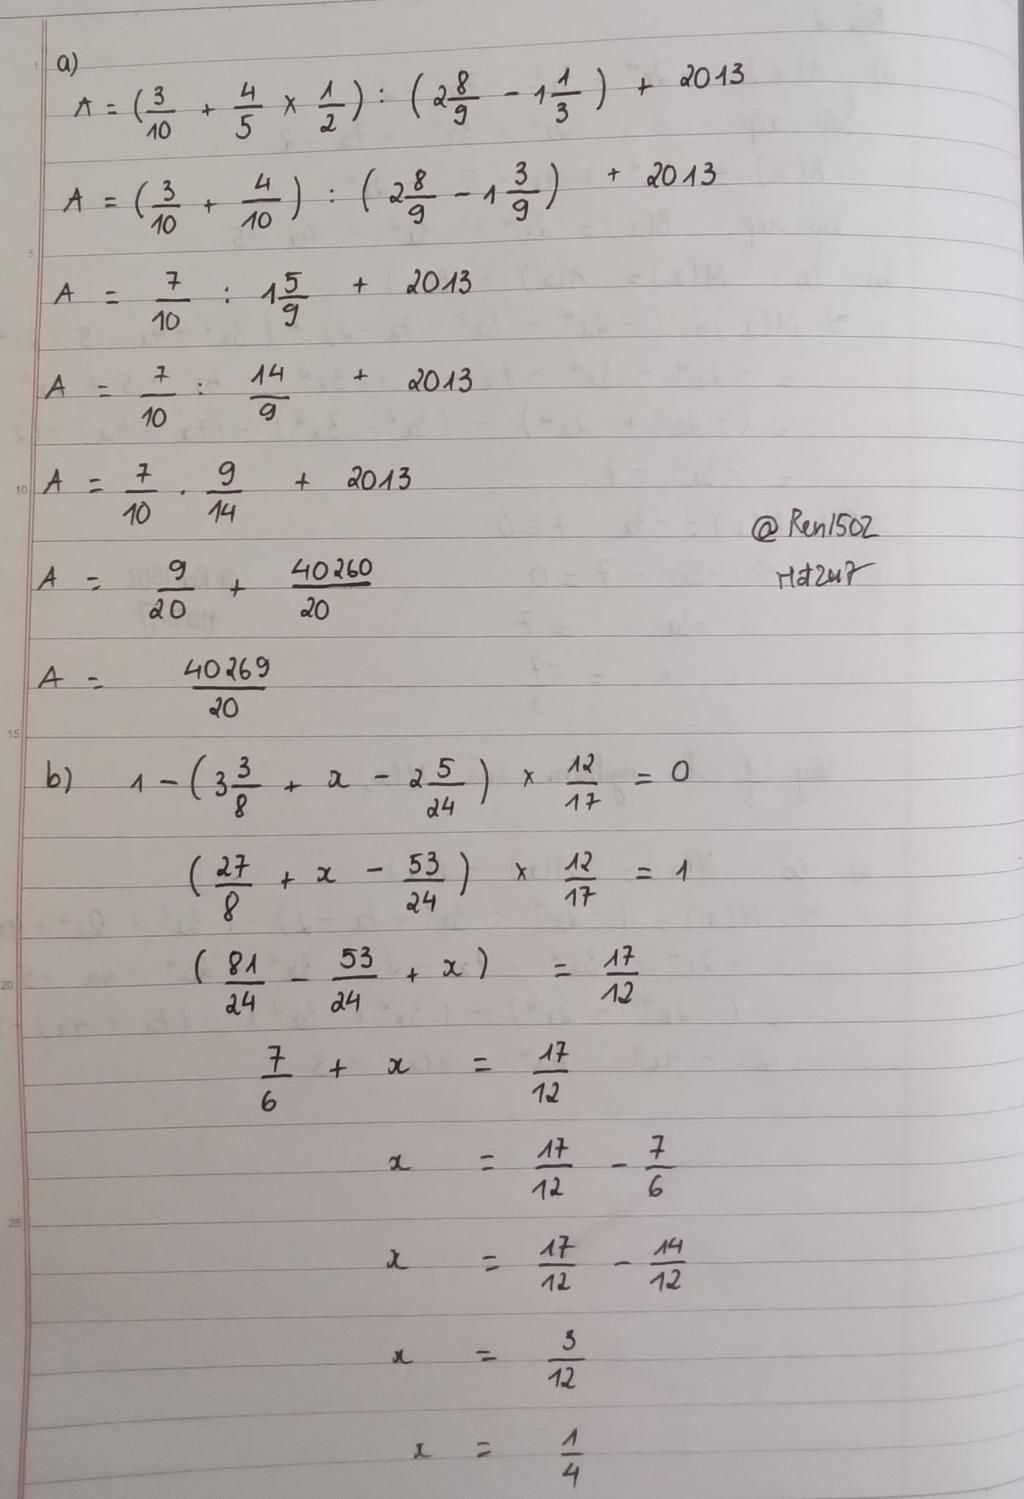 a)
A = (3/10 + 4/5 × 1/2) : (2 8/9 - 1 1/3) + 2013
A = (3/10 + 4/10) : (2 8/9 - 1 3/9) + 2013
A = 7/10 : 1 5/9 + 2013
A = 7/10 : 14/9 + 2013
A = 7/10 . 9/14 + 2013
@Ren1502
A = 9/20 + 40260/20
A = 40269/20
b) 1 - (3 3/8 + x - 2 5/24) × 12/17 = 0
(27/8 + x - 53/24) × 12/17 = 1
(81/24 - 53/24 + x) = 17/12
7/6 + x = 17/12
x = 17/12 - 7/6
x = 17/12 - 14/12
x = 3/12
x = 1/4